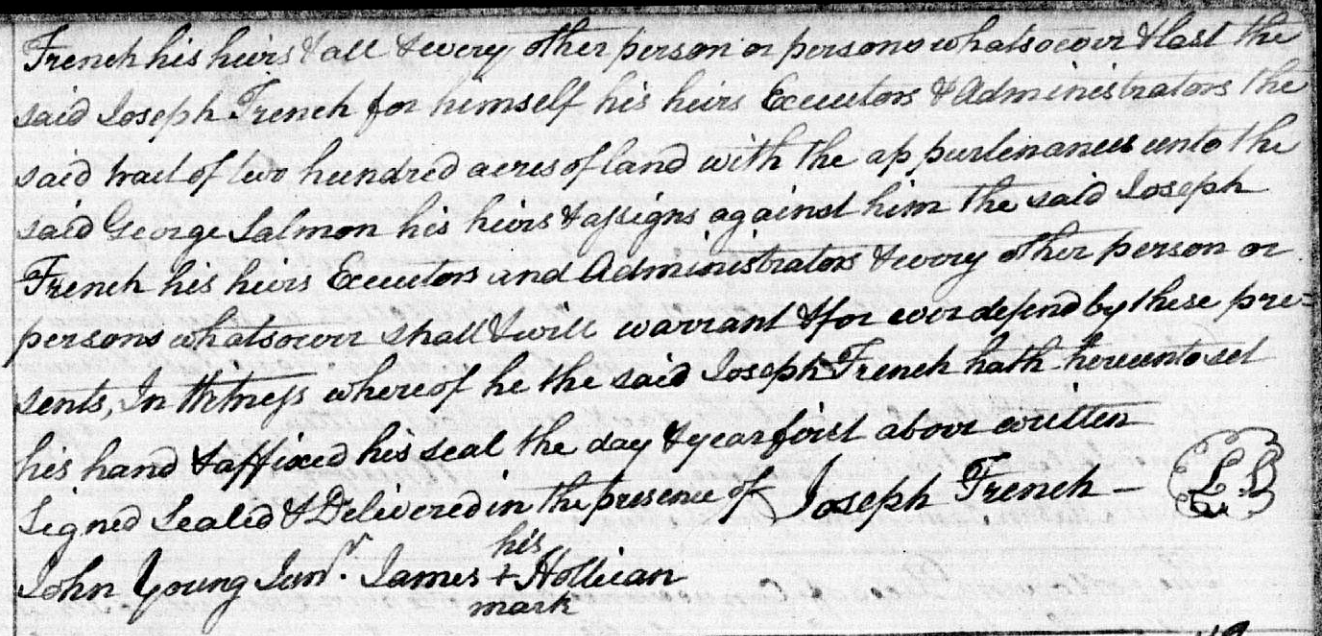 French his heirs & all & every other person or persons whatsoever & last the
said Joseph French for himself his heirs Executors & Administrators the
said tract of two hundred acres of land with the appurtenances unto the
said George Salmon his heirs & assigns against him the said Joseph
French his heirs Executors and Administrators & every other person or
persons whatsoever shall & will warrant & for ever defend by these pre=
sents, In Witness whereof he the said Joseph French hath hereunto set
his hand & affixed his seal the day & year first above written
Signed Sealed & Delivered in the presence of Joseph French — LS
his
John Young Junr. James + Hollican
mark